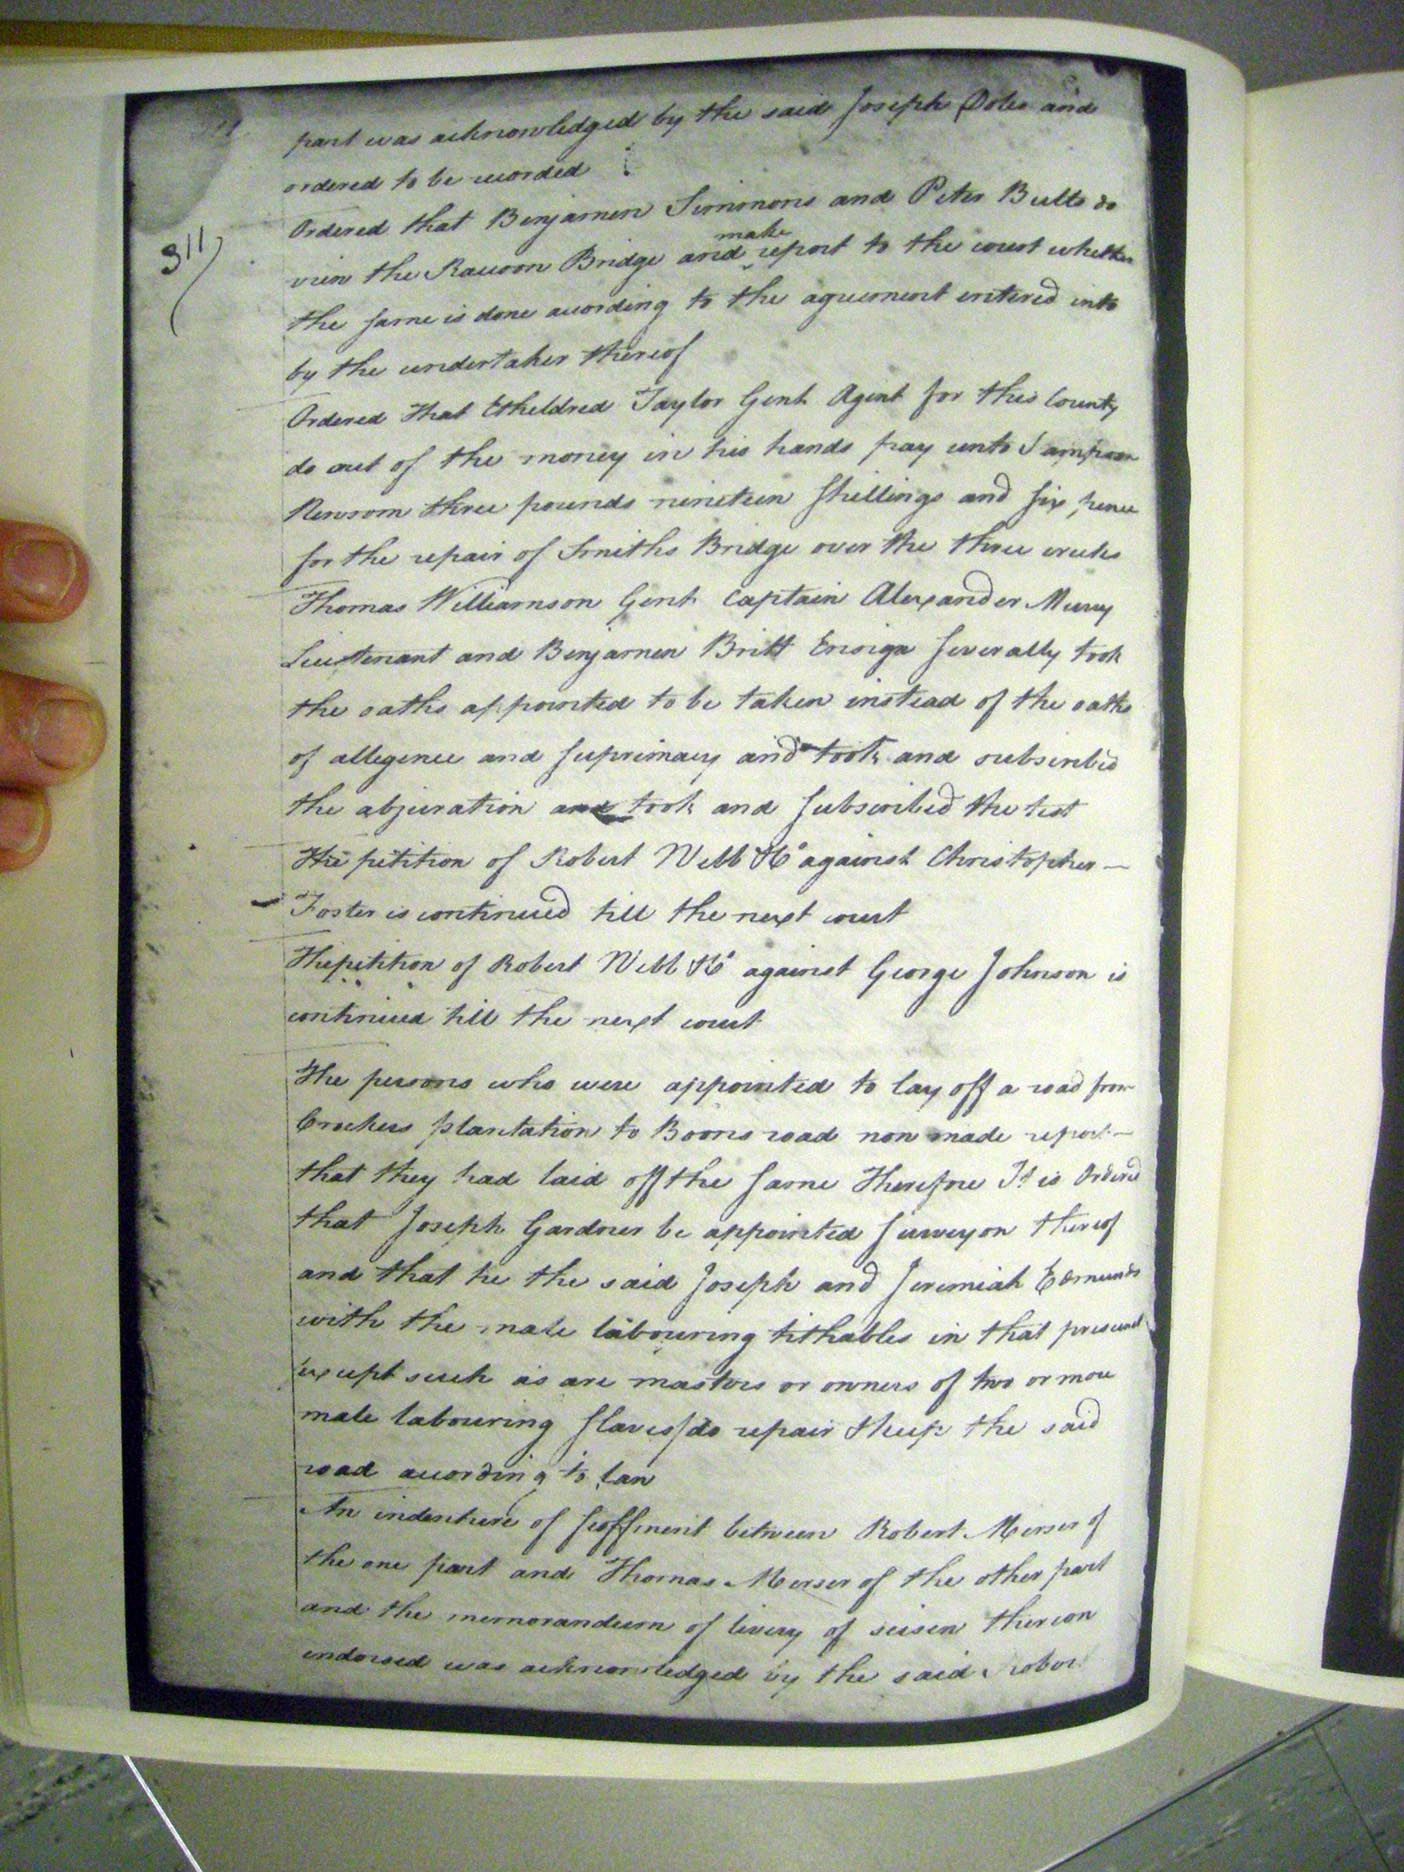 311
part was acknowledged by the said Joseph Doles and
ordered to be recorded
Ordered that Benjamen Simmons and Peter Butts do
view the Racoon Bridge and make report to the court whether
the same is done according to the agreement entered into
by the undertaker thereof
Ordered that Etheldred Taylor Gent Agent for this County
do out of the money in his hands pay unto Sampson
Newsom three pounds nineteen shillings and six pence
for the repair of Smiths Bridge over the three creeks
Thomas Williamson Gent Captain Alexander Murry
Lieutenant and Benjamen Britt Ensign severally took
the oaths appointed to be taken instead of the oaths
of allegence and supremacy and took and subscribed
the abjuration and took and subscribed the test
The petition of Robert Webb &c against Christopher
Foster is continued till the next court
The petition of Robert Webb &c against George Johnson is
continued till the next court
The persons who were appointed to lay off a road from
Crockers plantation to Boons road now made report
that they had laid off the same Therefore It is Ordered
that Joseph Gardner be appointed surveyor thereof
and that he the said Joseph and Jeremiah Edmunds
with the male labouring tithables in that
except such as are masters or owners of two or more
male labouring slaves do repair & keep the said
road according to law
An indenture of feoffment between Robert Merser of
the one part and Thomas Merser of the other part
and the memorandum of livery of seisen thereon
endorsed was acknowledged by the said Rober